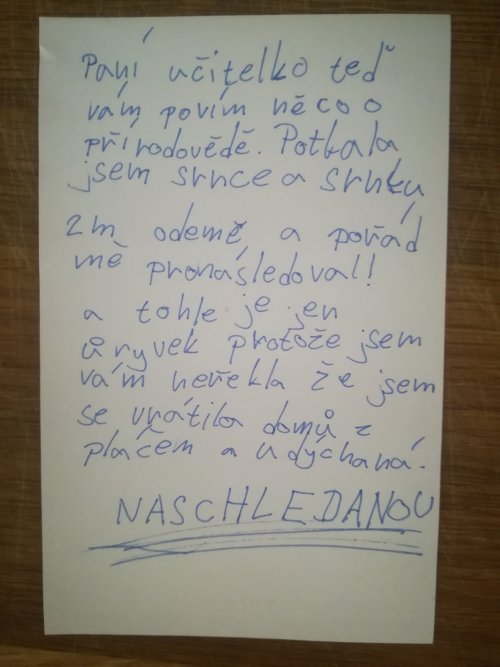 Paní učitelko teď
vám povím něco o
přírodovědě. Potkala
jsem srnce a srnku
2m odemě, a pořád
mě pronásledoval!
a tohle je jen
ůryvek protože jsem
vám neřekla že jsem
se vrátila domů z
pláčem a udýchaná.
NASCHLEDANOU